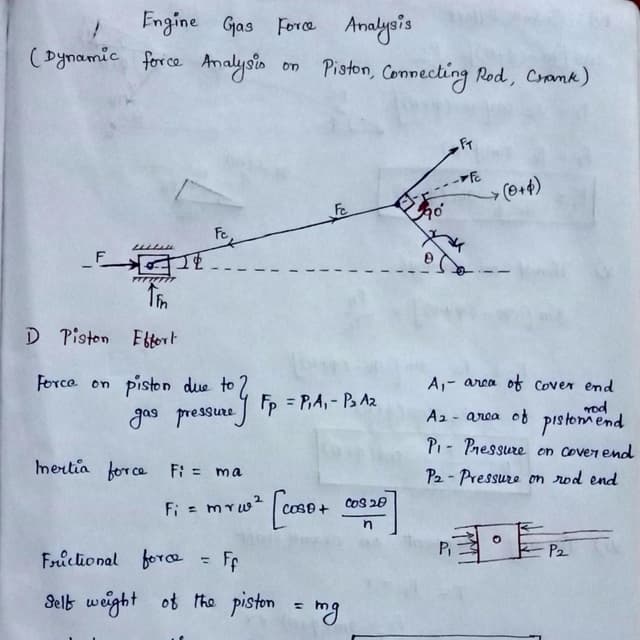 Engine Gas Force Analysis
(Dynamic force Analysis on Piston, Connecting Rod, Crank)
FT
Fc
(θ+ϕ)
90°
Fc
Fc
r
F
ϕ
θ
Fn
1) Piston Effort
Force on piston due to gas pressure } Fp = P1A1 - P2A2
A1 - area of cover end
A2 - area of piston rod end
P1 - Pressure on cover end
P2 - Pressure on rod end
Inertia force Fi = ma
Fi = mrω² [cosθ + cos2θ/n]
P1
P2
Frictional force = Ff
Self weight of the piston = mg